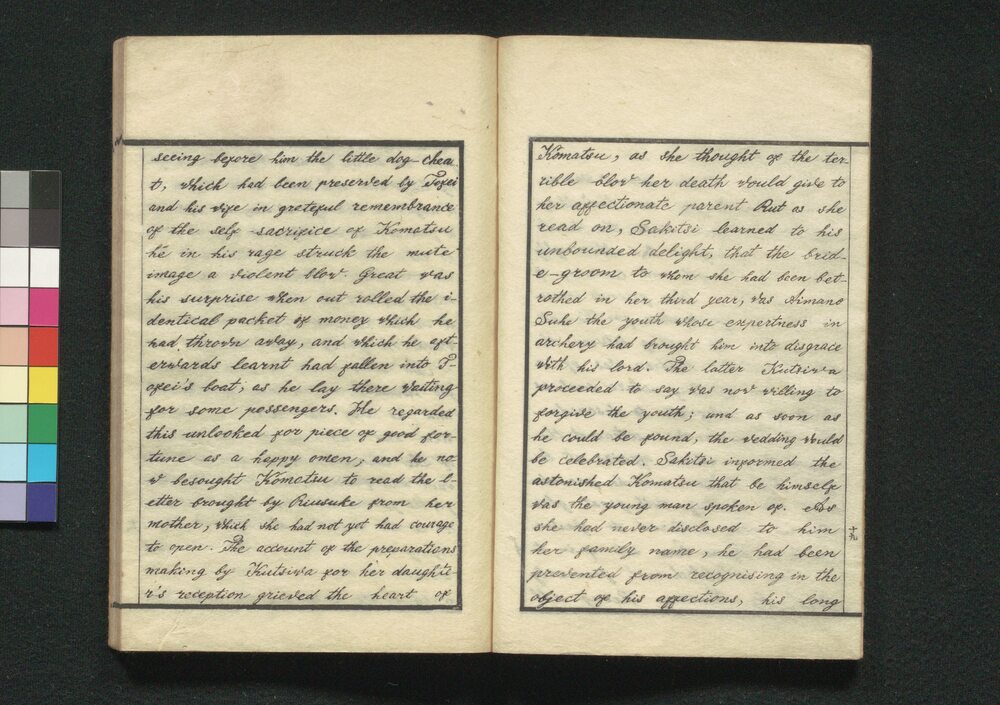 seeing before him the little dog-chea
t, which had been preserved by Tofei
and his wife in grateful remembrance
of the self-sacrifice of Komatsu
he in his rage struck the mute
image a violent blow. Great was
his surprise when out rolled the i-
dentical packet of money which he
had thrown away, and which he aft-
erwards learnt had fallen into T-
ofei's boat, as he lay there waiting
for some possengers. He regarded
this unlooked for piece of good for-
tune as a happy omen, and he no-
w besought Komatsu to read the l-
etter brought by Riusuke from her
mother, which she had not yet had courage
to open. The account of the preparations
making by Kutsiwa for her daughte-
r's reception grieved the heart of
Komatsu, as she thought of the ter-
rible blow her death would give to
her affectionate parent But as she
read on, Sakitsi learned to his
unbounded delight, that the brid-
e-groom to whom she had been bet-
rothed in her third year, was Aimano
Suke the youth whose expertness in
archery had brought him into disgrace
with his lord. The latter Kutsiwa
proceeded to say was now willing to
forgive the youth; and as soon as
he could be found, the wedding would
be celebrated. Sakitsi informed the
astonished Komatsu that be himself
was the young man spoken of. As
she had never disclosed to him
her family name, he had been
prevented from recognising in the
object of his affections, his long
十九